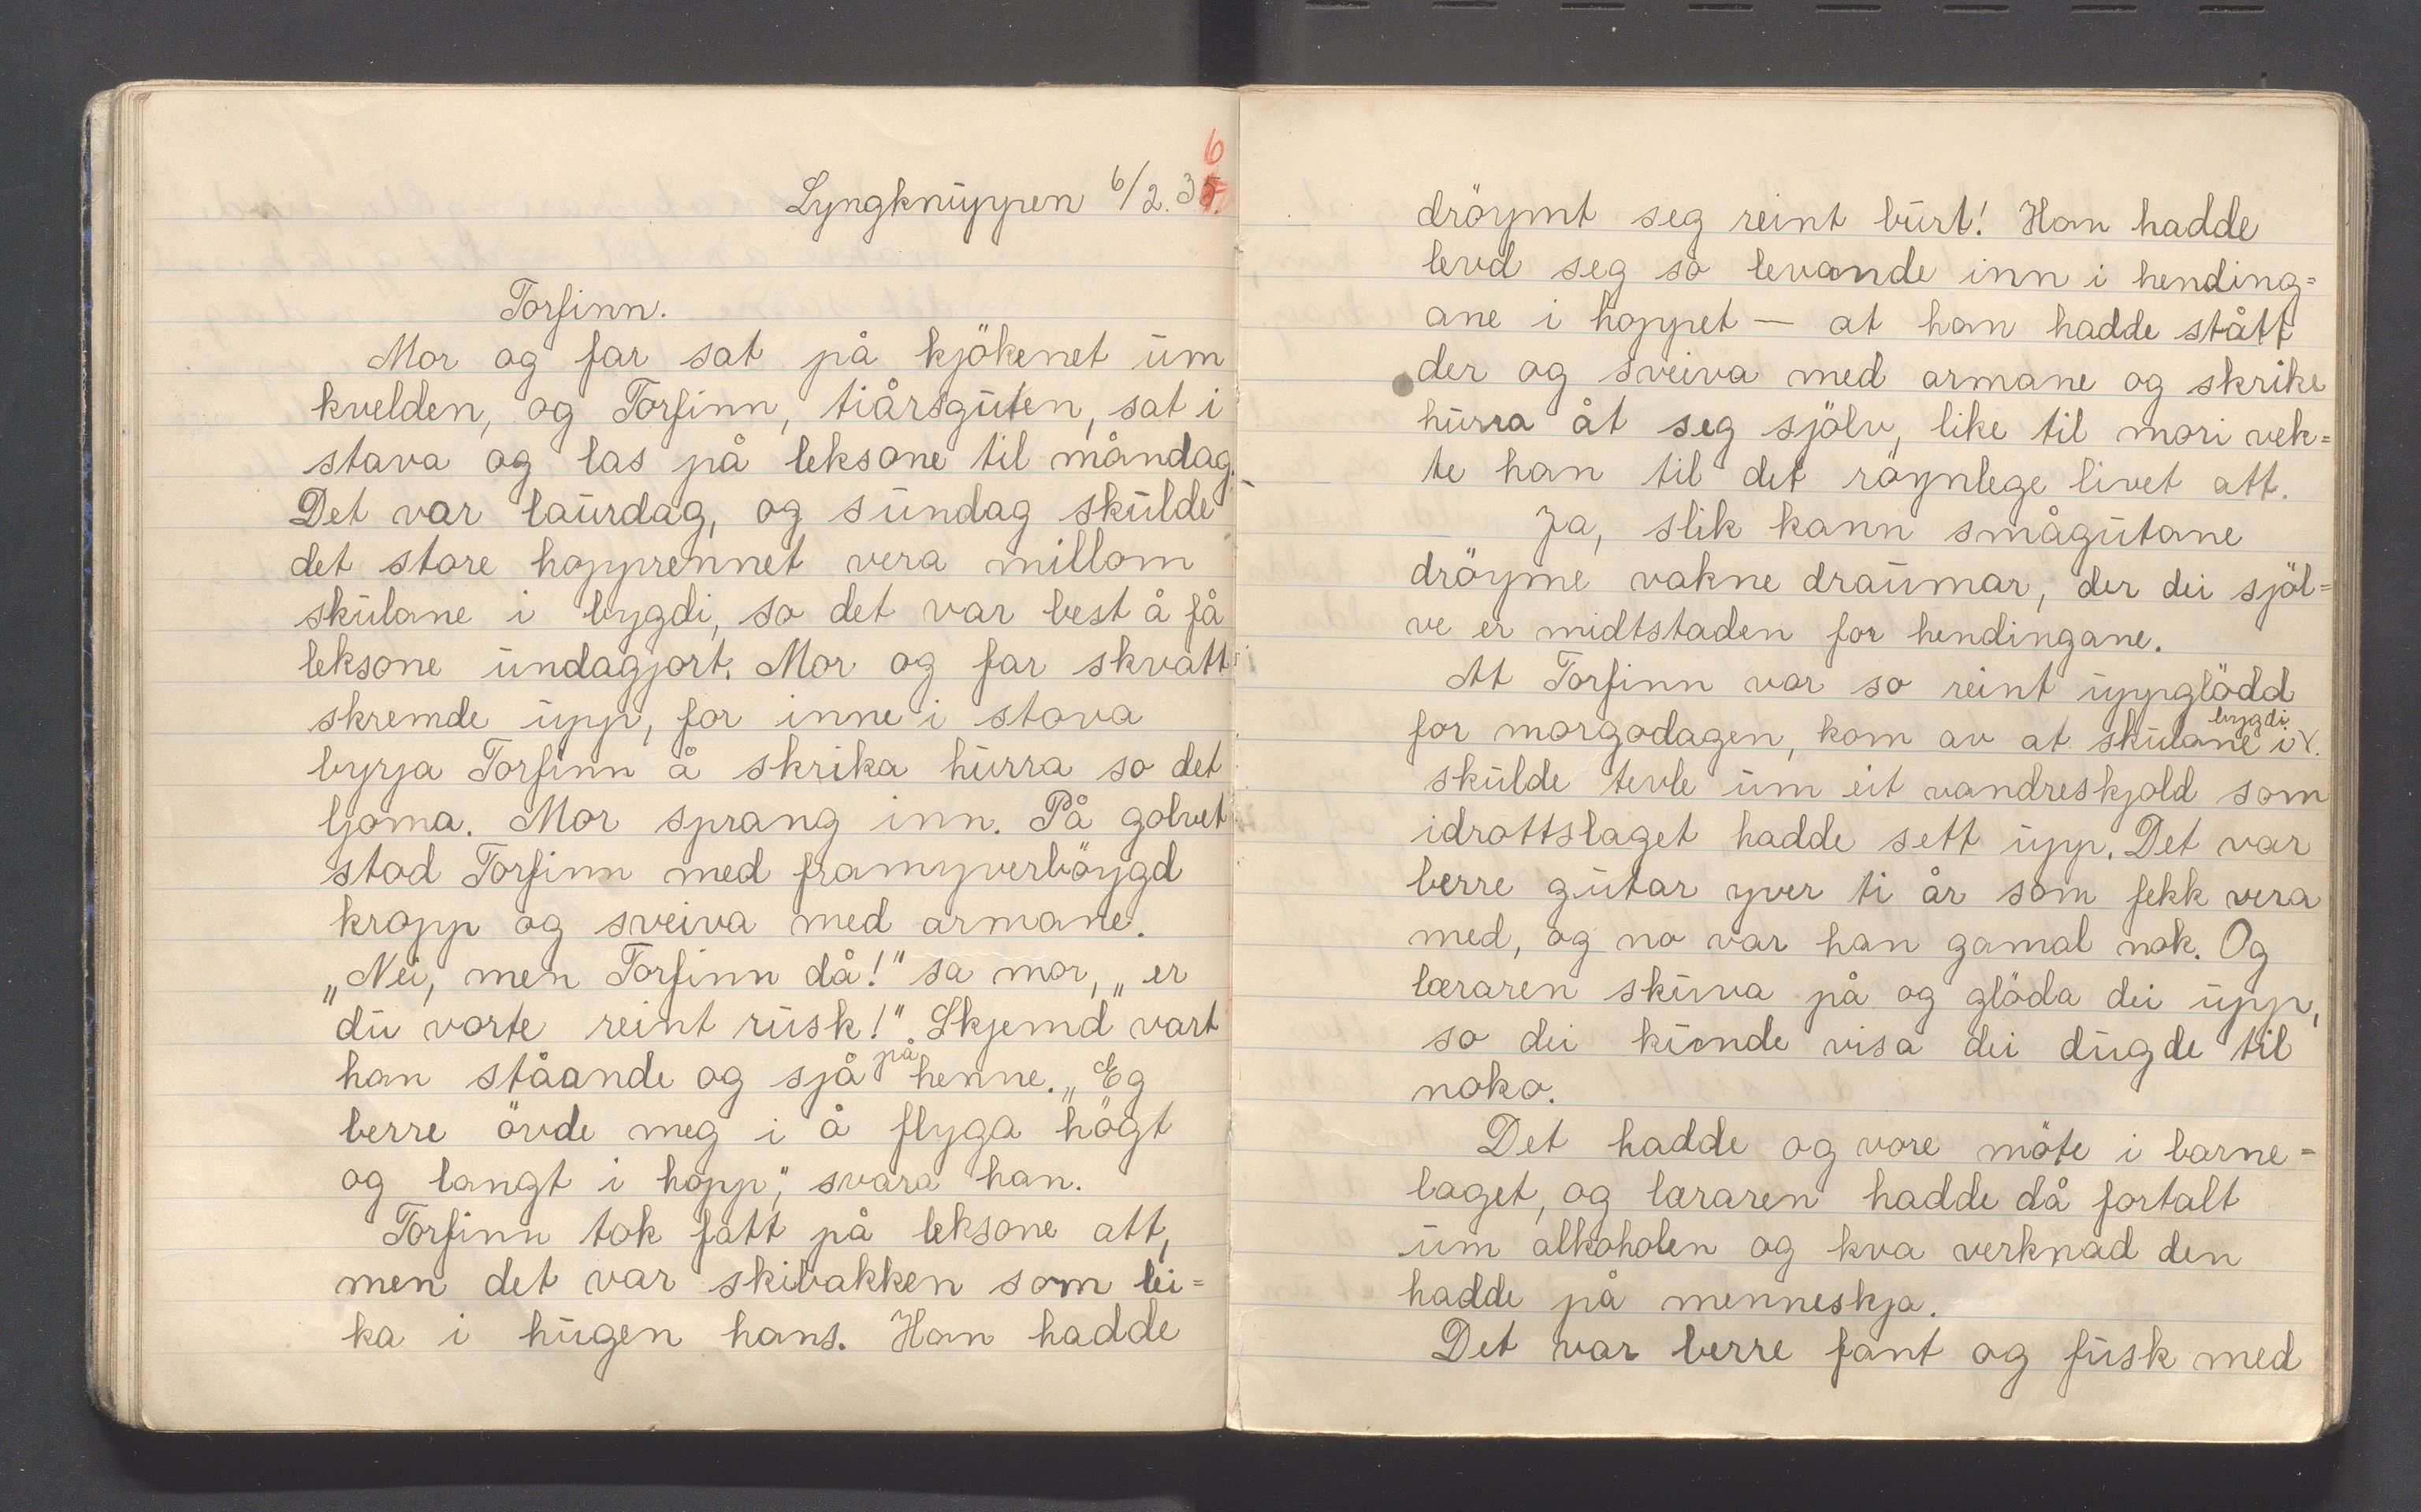 Lyngknuppen 6/2.35.
6
Torfinn.
Mor og far sat på kjökenet um
kvelden, og Torfinn, tiårsguten, sat i
stova og las på leksone til måndag.
Det var laurdag, og sundag skulde
det store hopprennet vera millom
skulane i bygdi, so det var best å få
leksone undagjort. Mor og far skvatt
skremde upp, for inne i stova
byrja Torfinn å skrika hurra so det
ljoma. Mor sprang inn. På golvet
stod Torfinn med framyverböygd
kropp og sveiva med armane.
„Nei, men Torfinn då!" sa mor, „er
du vorte reint rusk!" Skjemd vart
han ståande og sjå på henne. „Eg
berre övde meg i å flyga högt
og langt i hopp", svara han.
Torfinn tok fatt på leksone att,
men det var skibakken som lei=
ka i hugen hans. Han hadde
dröymt seg reint burt! Han hadde
levd seg so levande inn i hending=
ane i hoppet — at han hadde stått
der og sveiva med armane og skrike
hurra åt seg sjölv, like til mori vek=
te han til det röynlege livet att.
Ja, slik kann smågutane
dröyme vakne draumar, der dei sjöl=
ve er midtstaden for hendingane.
At Torfinn var so reint uppglödd
for morgodagen, kom av at skulane i bygdi
skulde tevle um eit vandreskjold som
idrottslaget hadde sett upp. Det var
berre gutar yver ti år som fekk vera
med, og no var han gamal nok. Og
læraren skuva på og glöda dei upp,
so dei kunde visa dei dugde til
noko.
Det hadde og vore möte i barne=
laget, og læraren hadde då fortalt
um alkoholen og kva verknad den
hadde på menneskja.
Det var berre fant og fusk med